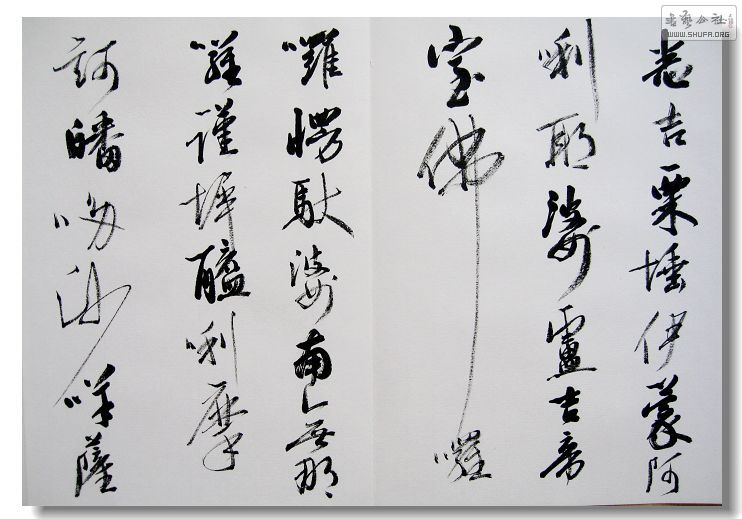 悉吉栗埵伊蒙阿
唎耶婆盧吉帝
室佛囉
囉愣馱婆南無那
囉謹墀醯唎摩
訶皤哆沙咩薩
书艺公社
WWW.SHUFA.ORG